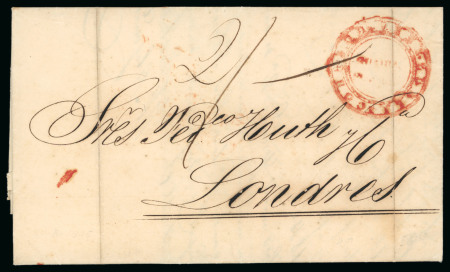 2/
Sres. Fedco Huth y Ca
Londres